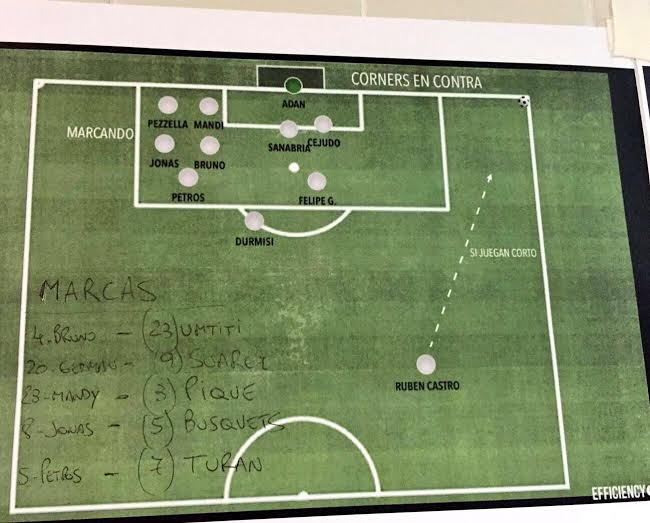 CORNERS EN CONTRA
ADAN
PEZZELLA MANDI
MARCANDO
SANABRIA CEJUDO
JONAS BRUNO
PETROS
FELIPE G.
DURMISI
SI JUEGAN CORTO
RUBEN CASTRO
MARCAS
4-BRUNO - (23) UMTITI
20-GERMAN - (9) SUAREZ
23-MANDY - (3) PIQUE
8-JONAS - (5) BUSQUETS
5-PETROS - (7) TURAN
EFFICIENCY